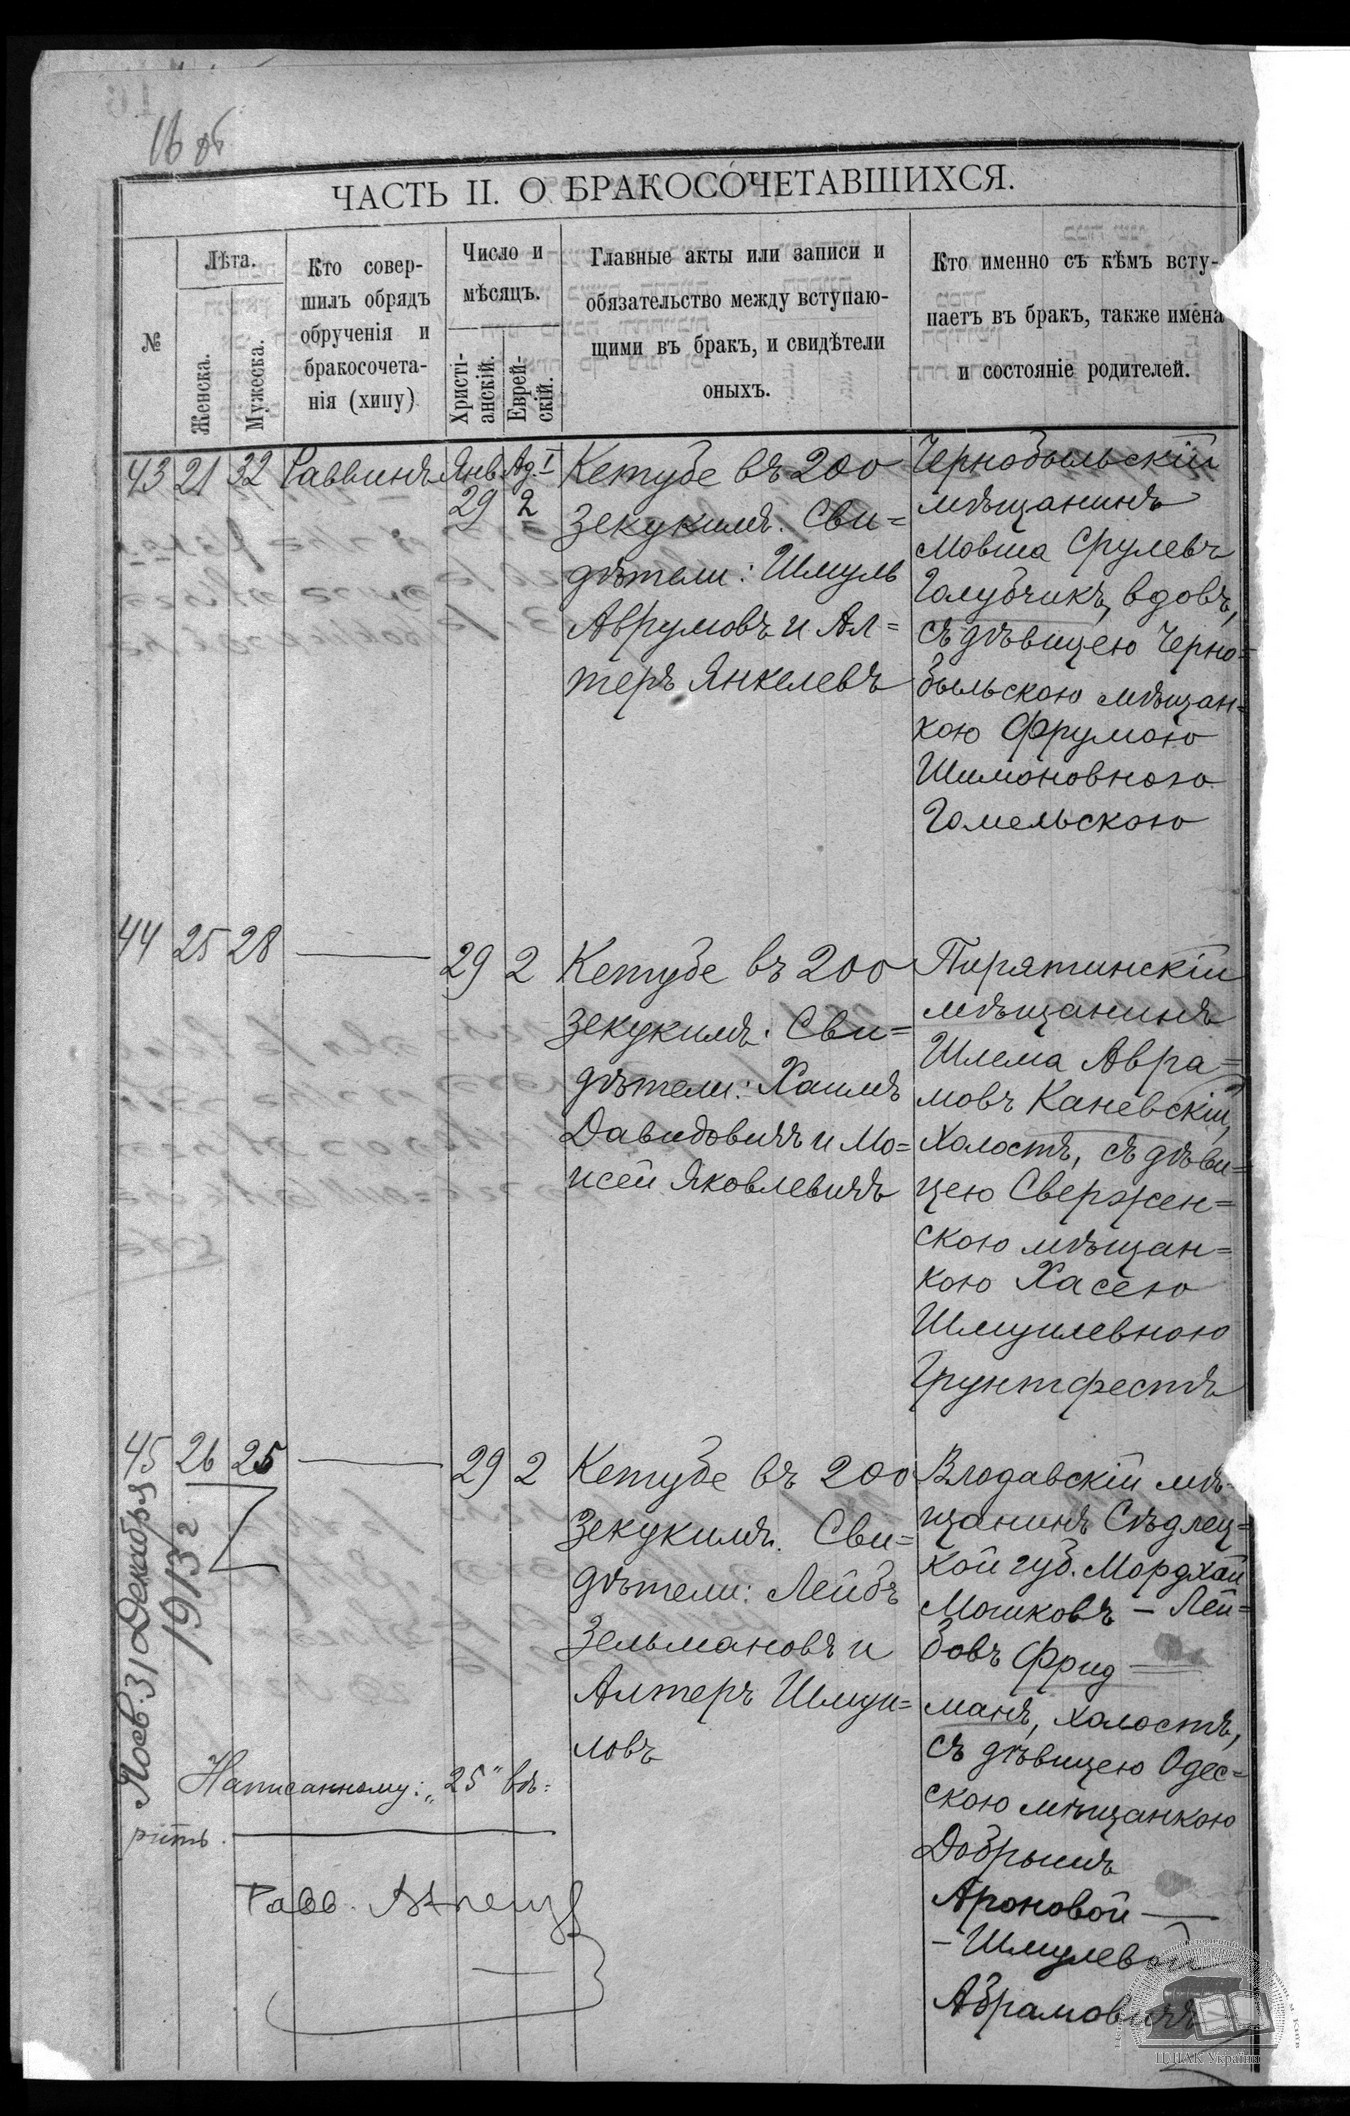 16 об
ЧАСТЬ II. О БРАКОСОЧЕТАВШИХСЯ.
№
Лѣта.
Женска.
Мужеска.
Кто совер-
шилъ обрядъ
обрученія и
бракосочета-
нія (хипу)
Число и
мѣсяцъ.
Христі-
анскій.
Еврей-
скій.
Главные акты или записи и
обязательство между вступаю-
щими въ бракъ, и свидѣтели
оныхъ.
Кто именно съ кѣмъ всту-
паетъ въ бракъ, также имена
и состояніе родителей.
43 21 32 Раввинъ Янв. 29 Ад. I 2
Кетубе въ 200
зекукимъ. Сви=
дѣтели: Шмуль
Аврумовъ и Ал=
теръ Янкелевъ
Чернобыльскій
мѣщанинъ
Мовша Срулевъ
Голубчикъ, вдовъ,
съ дѣвицею Черно=
быльскою мѣщан=
кою Фрумою
Шимоновною
Гомельскою
44 25 28 — 29 2
Кетубе въ 200
зекукимъ. Сви=
дѣтели: Хаимъ
Давидовичъ и Мо=
исей Яковлевичъ
Пирятинскій
мѣщанинъ
Шлема Авра=
мовъ Каневскій,
холостъ, съ дѣви=
цею Свержен=
скою мѣщан=
кою Хасею
Шмуилевною
Грунтфестъ
45 26 25 — 29 2
Кетубе въ 200
зекукимъ. Сви=
дѣтели: Лейбъ
Зельмановъ и
Алтеръ Шмуи=
ловъ
Влодавскій мѣ-
щанинъ Сѣдлец=
кой губ. Мордхай
Мошковъ - Лей=
бовъ Фрид
манъ, холостъ,
съ дѣвицею Одес=
скою мѣщанкою
Добрышъ
Ароновой —
- Шмулевой
Абрамовичъ
31 Декабря
1913 г.
Написанному: „25" вѣ=
рить.
Равв.
ЦДІАК України